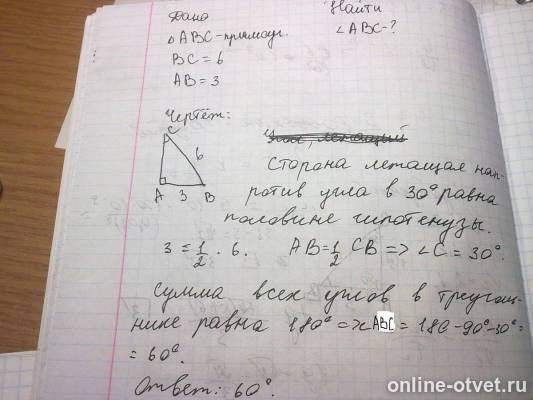 Дано
Найти
△ABC - прямоуг.
∠ABC - ?
BC = 6
AB = 3
Чертёж:
C
6
A 3 B
Сторона лежащая нап-
ротив угла в 30° равна
половине гипотенузы.
3 = 1/2 · 6. AB = 1/2 CB => ∠C = 30°.
Сумма всех углов в треуголь-
нике равна 180° => ∠ABC = 180 - 90° - 30° =
= 60°
Ответ: 60°.
online-otvet.ru